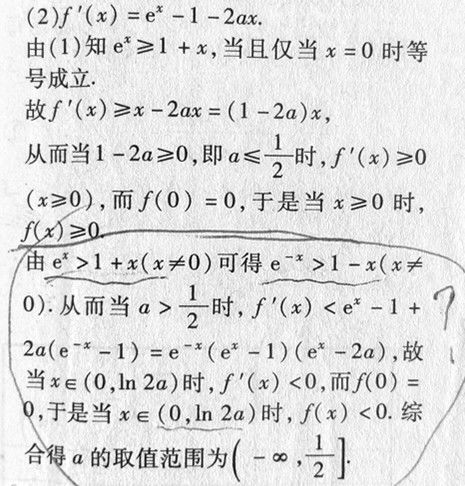 (2)f′(x)=eˣ-1-2ax.
由(1)知eˣ≥1+x,当且仅当x=0时等
号成立.
故f′(x)≥x-2ax=(1-2a)x,
从而当1-2a≥0,即a≤1/2时,f′(x)≥0
(x≥0),而f(0)=0,于是当x≥0时,
f(x)≥0.
由eˣ>1+x(x≠0)可得e⁻ˣ>1-x(x≠
0).从而当a>1/2时,f′(x)<eˣ-1+
2a(e⁻ˣ-1)=e⁻ˣ(eˣ-1)(eˣ-2a),故
当x∈(0,ln 2a)时,f′(x)<0,而f(0)=
0,于是当x∈(0,ln 2a)时,f(x)<0.综
合得a的取值范围为(-∞,1/2].
?